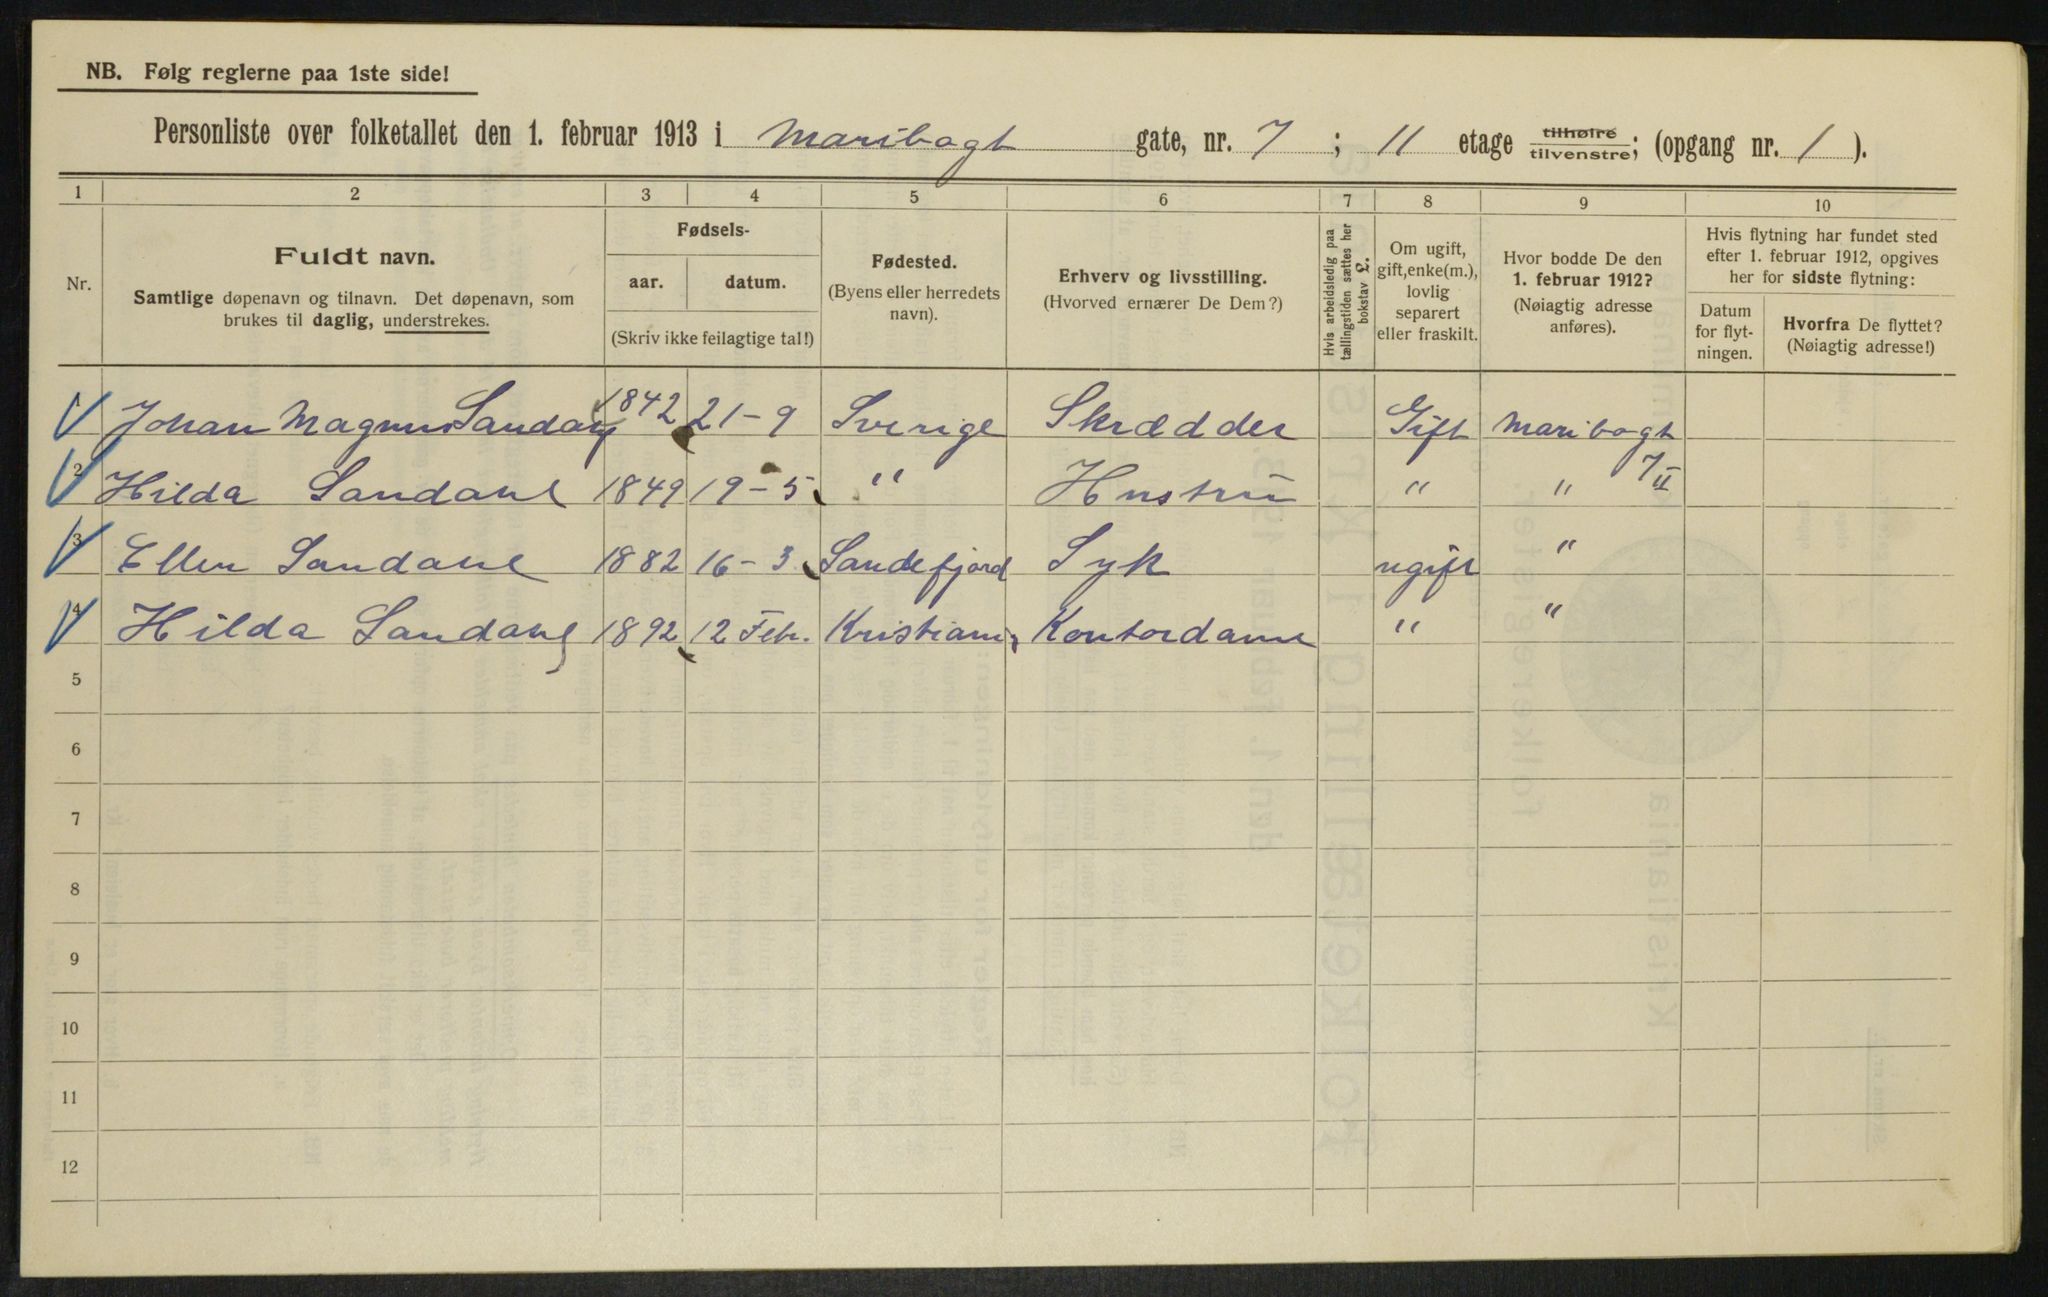 NB. Følg reglerne paa 1ste side!
Personliste over folketallet den 1. februar 1913 i Maribogt gate, nr. 7; 11 etage tilhøire/tilvenstre; (opgang nr. 1).
1 2 3 4 5 6 7 8 9 10
Nr.
Fuldt navn.
Samtlige døpenavn og tilnavn. Det døpenavn, som
brukes til daglig, understrekes.
Fødsels-
aar. datum.
(Skriv ikke feilagtige tal!)
Fødested.
(Byens eller herredets
navn).
Erhverv og livsstilling.
(Hvorved ernærer De Dem?)
Hvis arbeidsledig paa
tællingstiden sættes her
bokstav L.
Om ugift,
gift, enke(m.),
lovlig
separert
eller fraskilt.
Hvor bodde De den
1. februar 1912?
(Nøiagtig adresse
anføres).
Hvis flytning har fundet sted
efter 1. februar 1912, opgives
her for sidste flytning:
Datum
for flyt-
ningen.
Hvorfra De flyttet?
(Nøiagtig adresse!)
1 Johan Magnus 1842 21-9 Sverige Skrædder Gift Maribogt
7/II
2 Hilda Sandahl 1849 19-5 " Hustru " "
3 Ellen Sandahl 1882 16-3 Sandefjord Syk ugift "
4 Hilda Sandahl 1892 12 Febr. Kristiania Kontordame " "
5
6
7
8
9
10
11
12